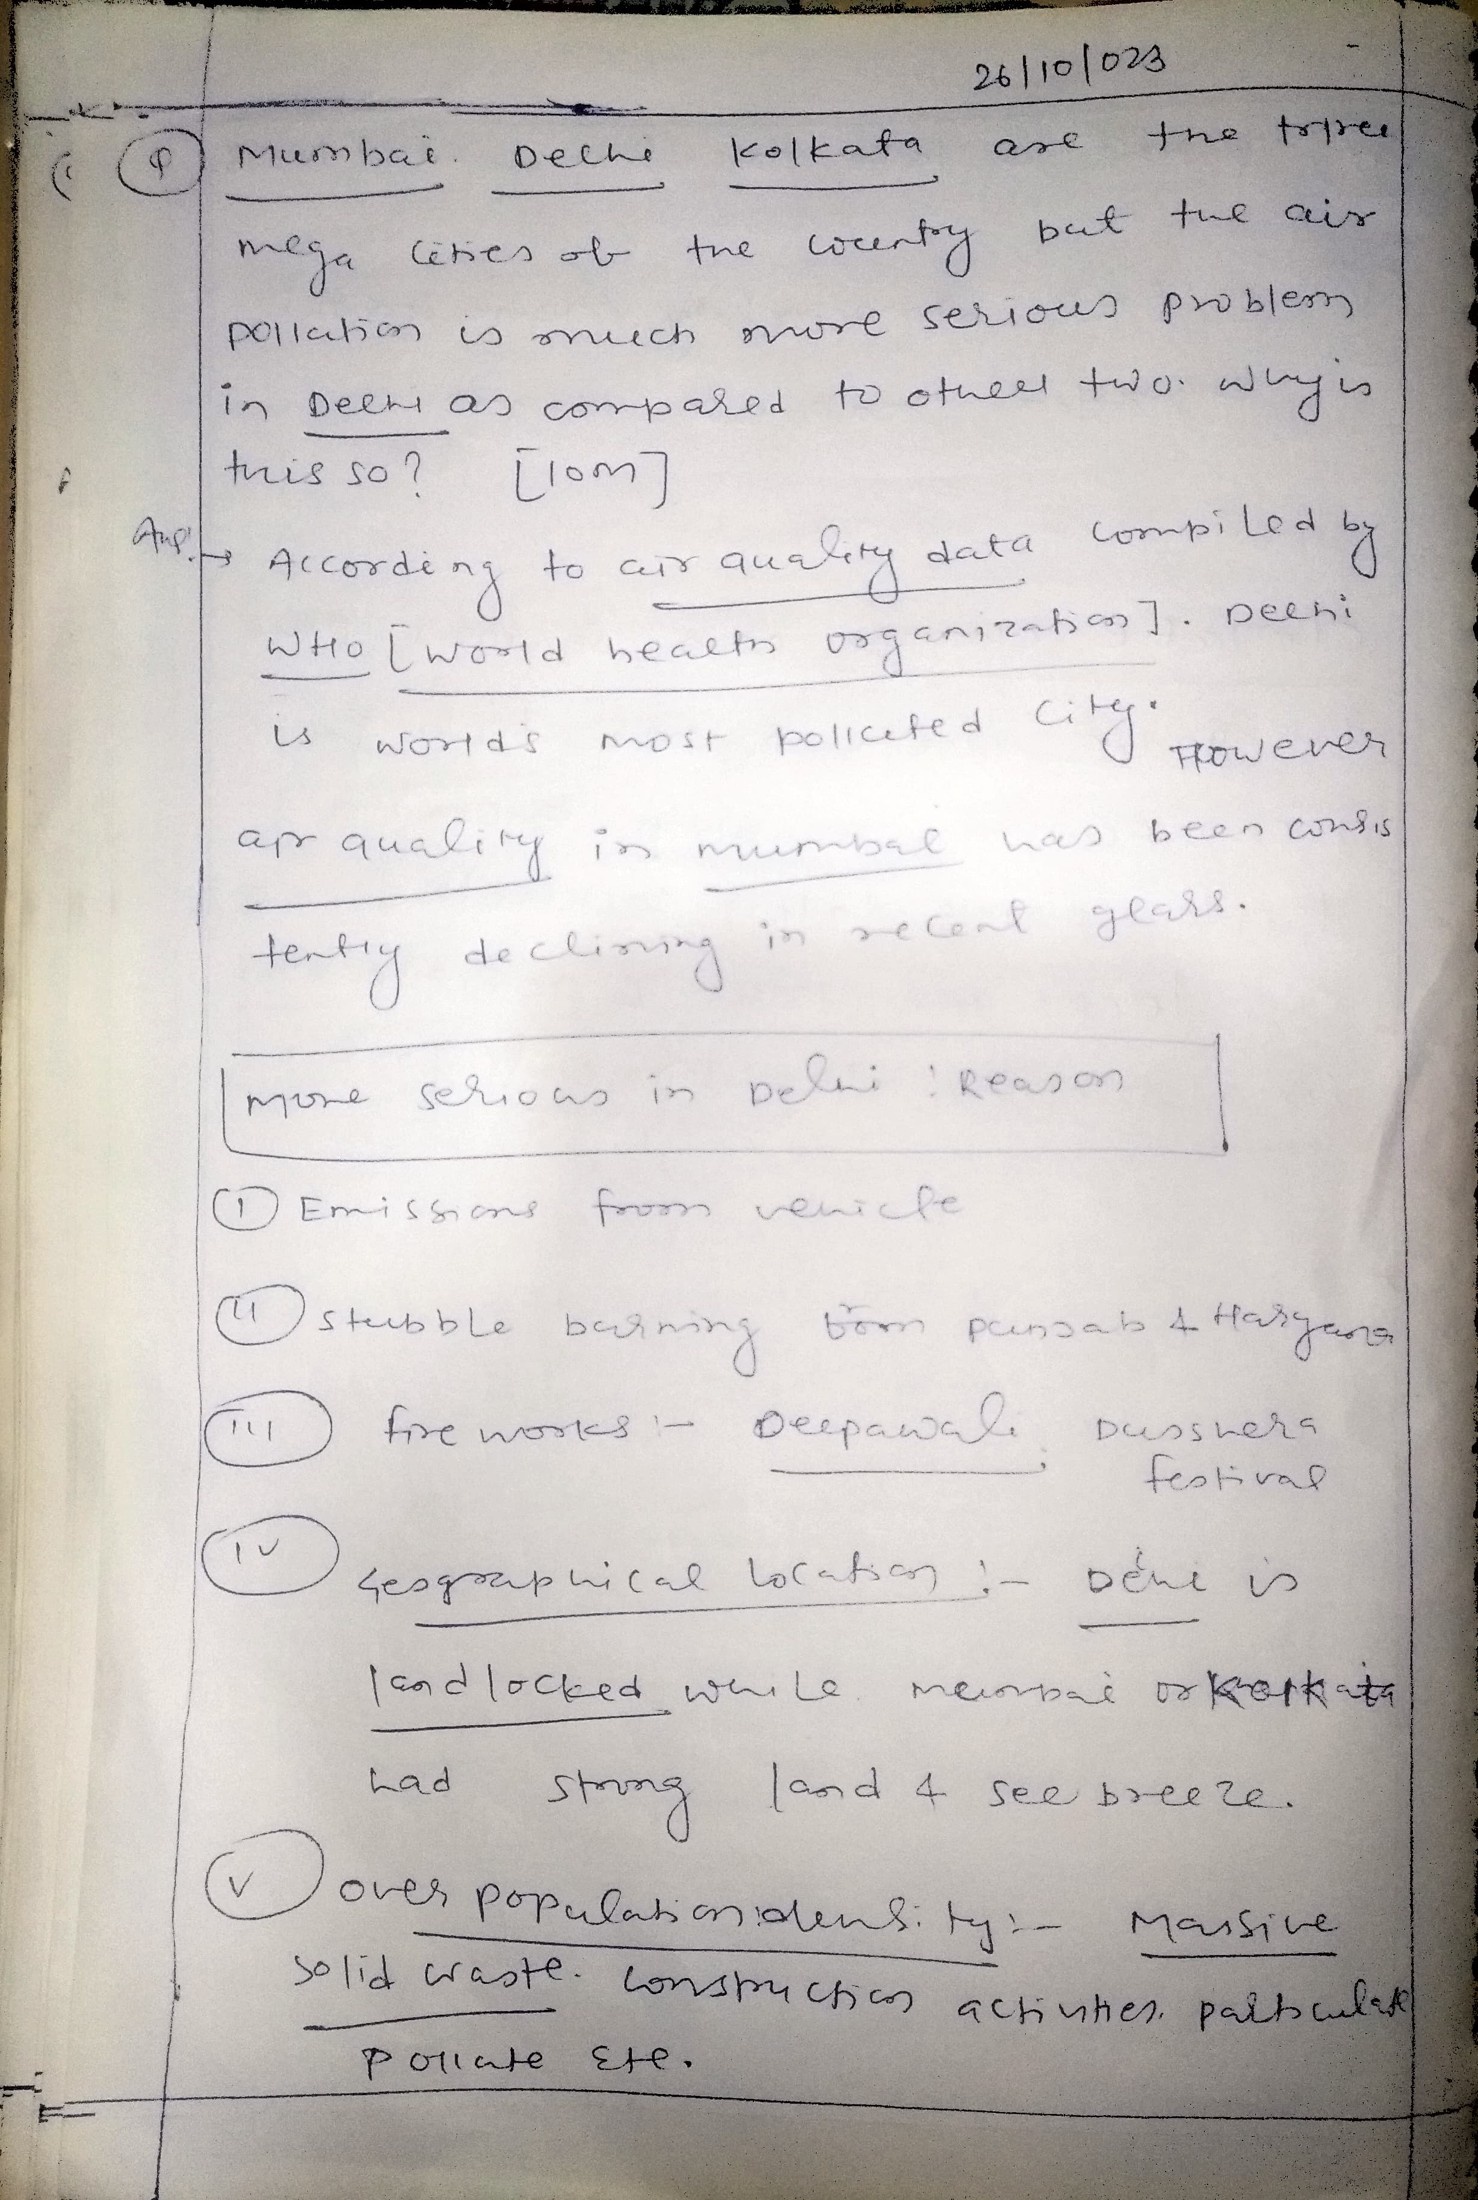 26/10/023
Q Mumbai. Delhi Kolkata are the three
mega cities of the country but the air
pollution is much more serious problem
in Delhi as compared to other two. Why is
this so? [10M]
Ans. → According to air quality data compiled by
WHO [World health organization]. Delhi
is world's most polluted city. However
air quality in mumbai has been consis
tently declining in recent years.
More serious in Delhi : Reason
I Emissions from vehicle
II stubble burning from punjab & Haryana
III fire works :- Deepawali, Dusshera
festival
IV Geographical location :- Delhi is
landlocked while mumbai or Kolkata
had strong land & see breeze.
V over population density :- Massive
solid waste. construction activities. particulate
pollute Etc.